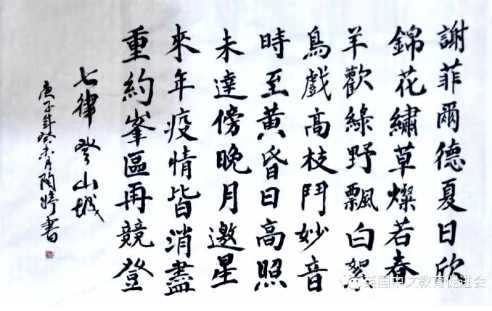 謝菲爾德夏日欣
錦花繡草燦若春
羊歡綠野飄白絮
鳥戲高枝鬥妙音
時至黃昏日高照
未達傍晚月邀星
來年疫情皆消盡
重約峯區再競登
七律登山城
庚子年癸未月陶婷書
英国中文教育促进会